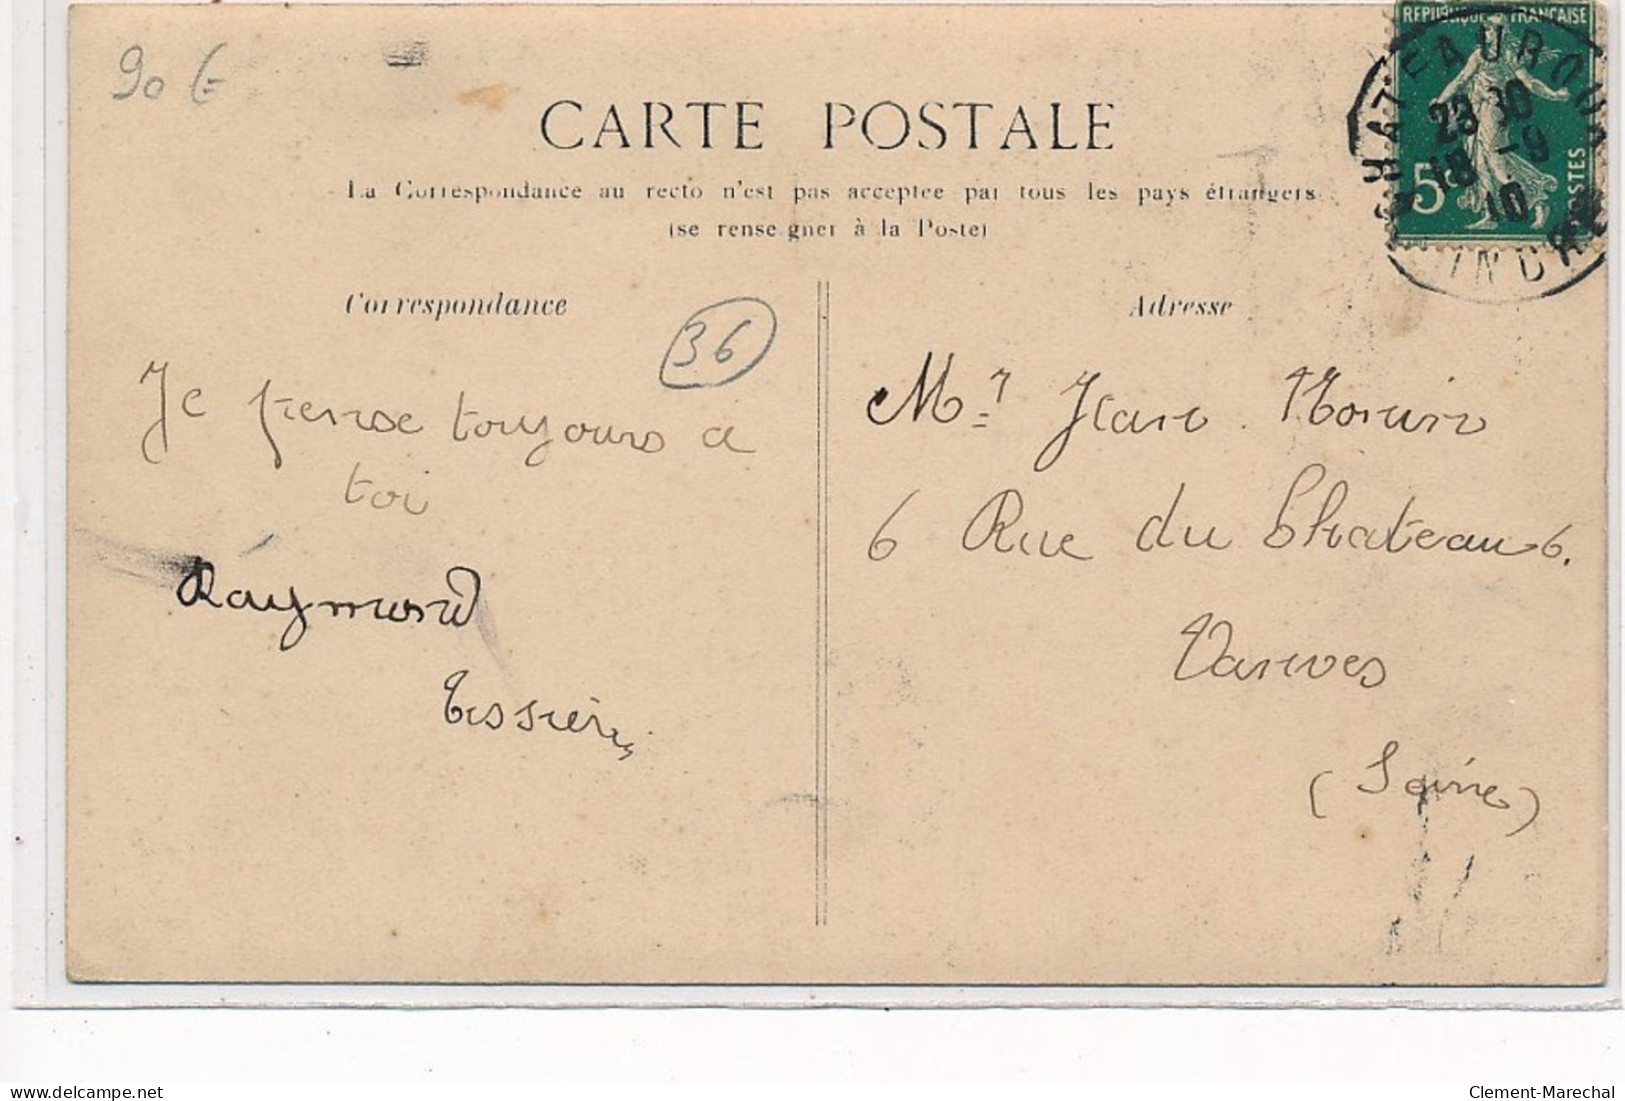 90 €
CARTE POSTALE
La Correspondance au recto n'est pas acceptée par tous les pays étrangers
(se renseigner à la Poste)
Correspondance
36
Je pense toujours a
toi
Raymond
Tissier
Adresse
Mr Jean Morin
6 Rue du Chateau 6.
Vanves
(Seine)
REPUBLIQUE FRANÇAISE
5c
POSTES
CHATEAUROUX
23 30
18 -9
10
INDRE
www.delcampe.net
Clement-Marechal